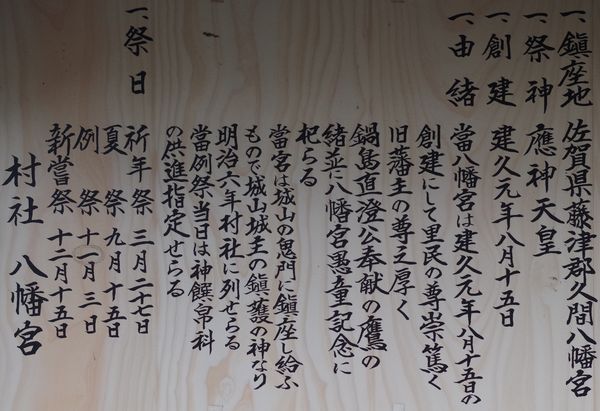 一、鎭座地 佐賀県藤津郡久間八幡宮
一、祭神 應神天皇
一、創建 建久元年八月十五日
一、由緒 當八幡宮は建久元年八月十五日の
創建にして里民の尊崇篤く
旧藩主の尊乏厚く
鍋島直澄公奉献の鷹の
緒並に八幡宮愚童記念に
祀らる
當宮は城山の鬼門に鎭座し給ふ
もので城山城主の鎭護の神なり
明治六年村社に列せらる
當例祭当日は神饌帛料
の供進指定せらる
一、祭日 祈年祭 三月二十七日
夏祭 九月十五日
例祭 十一月三日
新嘗祭 十二月十五日
村社 八幡宮